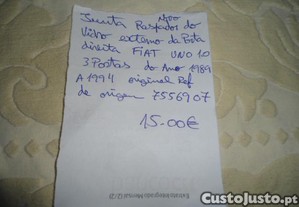 Novo
Junta Raspador do
Vidro externo da Porta
direita FIAT UNO 1.0
3 Portas do Ano 1989
A 1994 original Ref
de origem 7556907
15.00€
Extrato Integrado Mensal
CustoJusto.pt